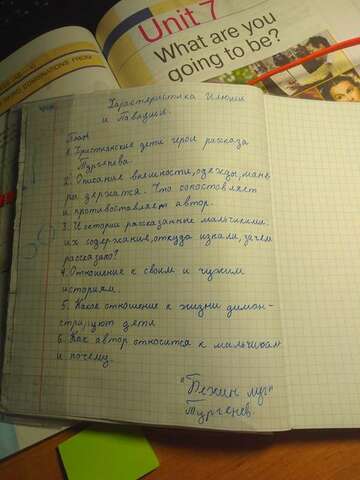 Unit 7
What are you
going to be?
Характеристика Илюши
и Павлуши.
План
1. Крестьянские дети герои рассказа
Тургенева.
2. Описание внешности, одежды, мане
ры держатся. Что сопоставляет
и противоставляет автор.
3. Истории рассказанные мальчиками.
их содержание, откуда взяли, зачем
рассказал?
4. Отношение к своим и чужим
историям.
5. Какое отношение к жизни димон-
стрируют дети
6. Как автор относится к мальчикам
и почему.
"Бежин луг"
Тургенев.